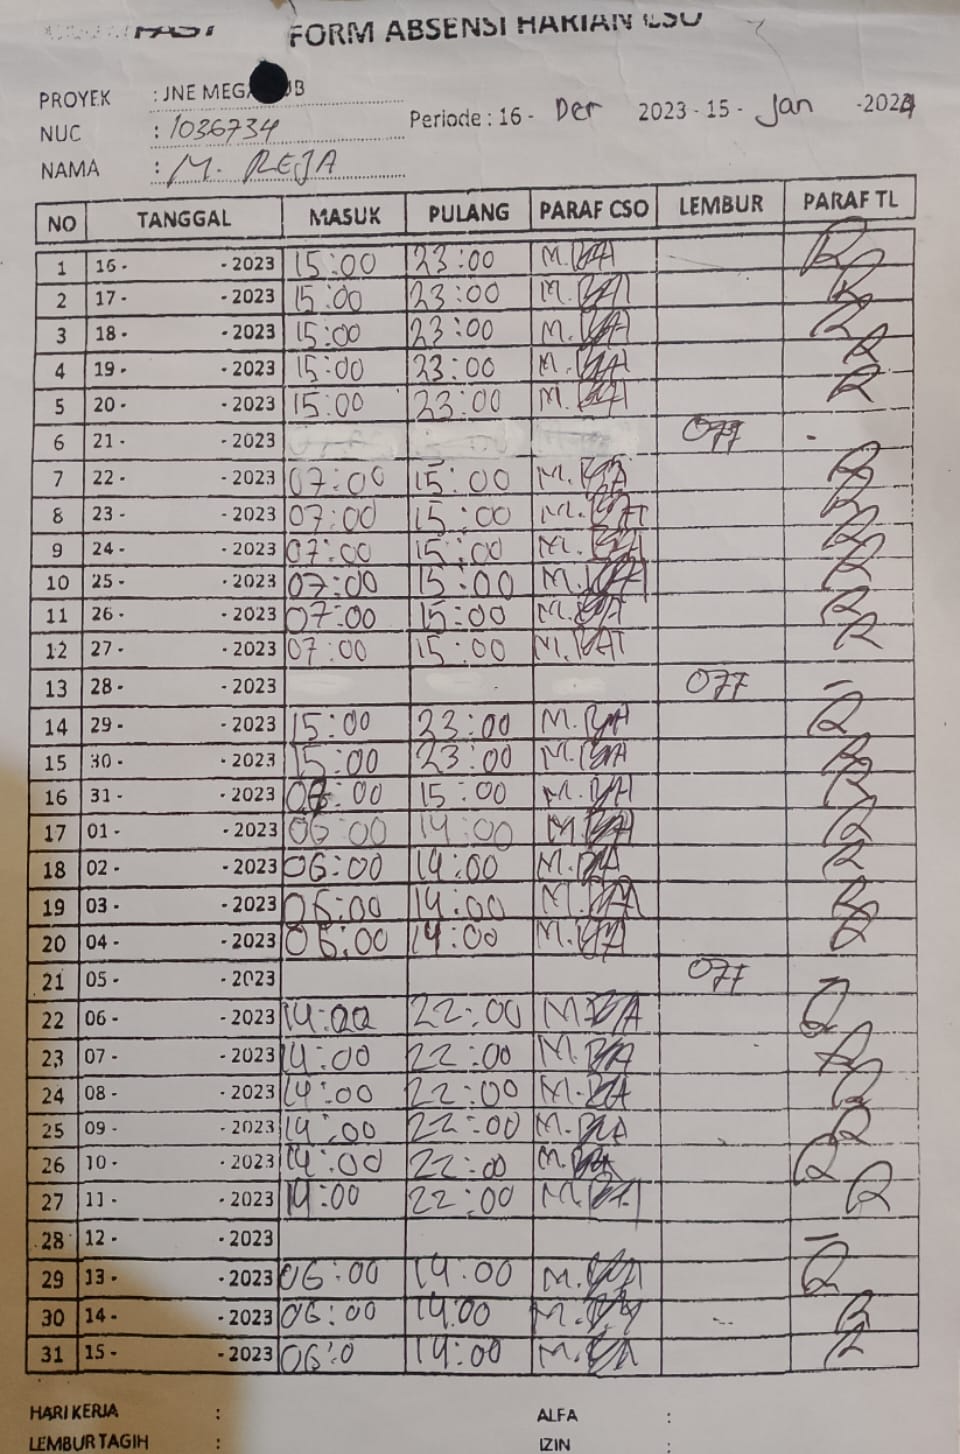 FAST FORM ABSENSI HARIAN CSO
PROYEK : JNE MEGA
NUC : 1036734
NAMA : M. REJA
Periode : 16 - Der 2023 - 15 - Jan - 2024
NO TANGGAL MASUK PULANG PARAF CSO LEMBUR PARAF TL
1 16 - - 2023 15:00 23:00
2 17 - - 2023 15:00 23:00
3 18 - - 2023 15:00 23:00
4 19 - - 2023 15:00 23:00
5 20 - - 2023 15:00 23:00
6 21 - - 2023 OFF -
7 22 - - 2023 07:00 15:00
8 23 - - 2023 07:00 15:00
9 24 - - 2023 07:00 15:00
10 25 - - 2023 07:00 15:00
11 26 - - 2023 07:00 15:00
12 27 - - 2023 07:00 15:00
13 28 - - 2023 OFF -
14 29 - - 2023 15:00 23:00
15 30 - - 2023 15:00 23:00
16 31 - - 2023 15:00
17 01 - - 2023 06:00 14:00
18 02 - - 2023 06:00 14:00
19 03 - - 2023 06:00 14:00
20 04 - - 2023 06:00 14:00
21 05 - - 2023 OFF
22 06 - - 2023 14:00 22:00
23 07 - - 2023 14:00 22:00
24 08 - - 2023 14:00 22:00
25 09 - - 2023 14:00 22:00
26 10 - - 2023 14:00 22:00
27 11 - - 2023 14:00 22:00
28 12 - - 2023 -
29 13 - - 2023 06:00 14:00
30 14 - - 2023 06:00 14:00
31 15 - - 2023 06:0 14:00
HARI KERJA : ALFA :
LEMBUR TAGIH : IZIN :